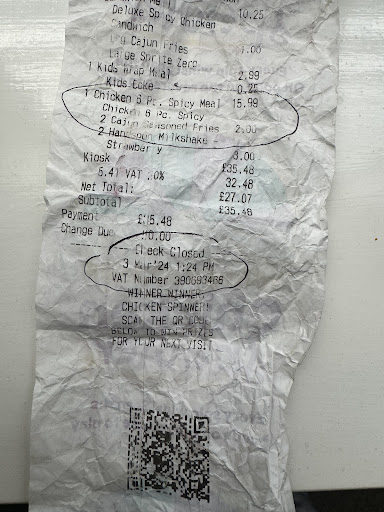 10.25
Deluxe Spicy Chicken
Sandwich
Cajun Fries 1.00
Large Sprite Zero
1 Kids Wrap Meal 2.99
Kids Coke 0.25
1 Chicken 6 Pc. Spicy Meal 15.99
Chicken 6 Pc. Spicy
2 Cajun Seasoned Fries 2.00
2 Milkshake -
Strawberry 3.00
Kiosk £35.48
5.41 VAT 32.48
Net Total: £27.07
Subtotal £35.48
Payment £35.48
Change Due 0.00
Check Closed
3 Mar'24 1:24 PM
VAT Number 390693486
WINNER WINNER,
CHICKEN SPINNER!
SCAN THE QR CODE
BELOW TO WIN PRIZES
FOR YOUR NEXT VISIT